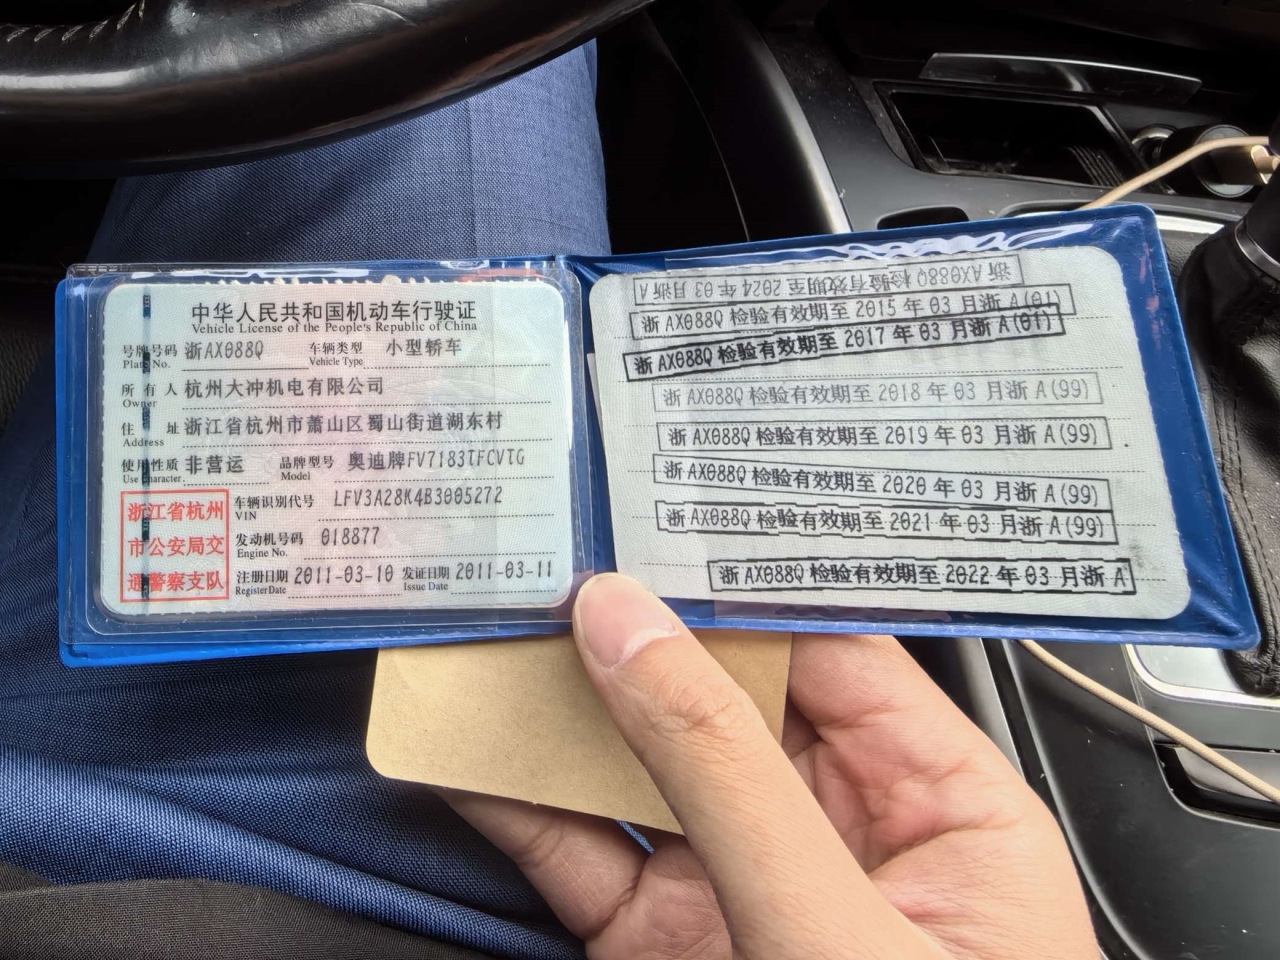 中华人民共和国机动车行驶证
Vehicle License of the People's Republic of China
号牌号码 浙AX088Q 车辆类型 小型轿车
Plate No. Vehicle Type
所有人 杭州大冲机电有限公司
Owner
住址 浙江省杭州市萧山区蜀山街道湖东村
Address
使用性质 非营运 品牌型号 奥迪牌FV7183TFCVTG
Use Character Model
浙江省杭州
市公安局交
通警察支队
车辆识别代号 LFV3A28K4B3005272
VIN
发动机号码 018877
Engine No.
注册日期 2011-03-10 发证日期 2011-03-11
Register Date Issue Date
浙 AX088Q 检验有效期至 2024 年 03 月浙 A
浙 AX088Q 检验有效期至 2015 年 03 月浙 A(01)
浙 AX088Q 检验有效期至 2017 年 03 月浙 A(01)
浙 AX088Q 检验有效期至 2018 年 03 月浙 A(99)
浙 AX088Q 检验有效期至 2019 年 03 月浙 A(99)
浙 AX088Q 检验有效期至 2020 年 03 月浙 A(99)
浙 AX088Q 检验有效期至 2021 年 03 月浙 A(99)
浙 AX088Q 检验有效期至 2022 年 03 月浙 A